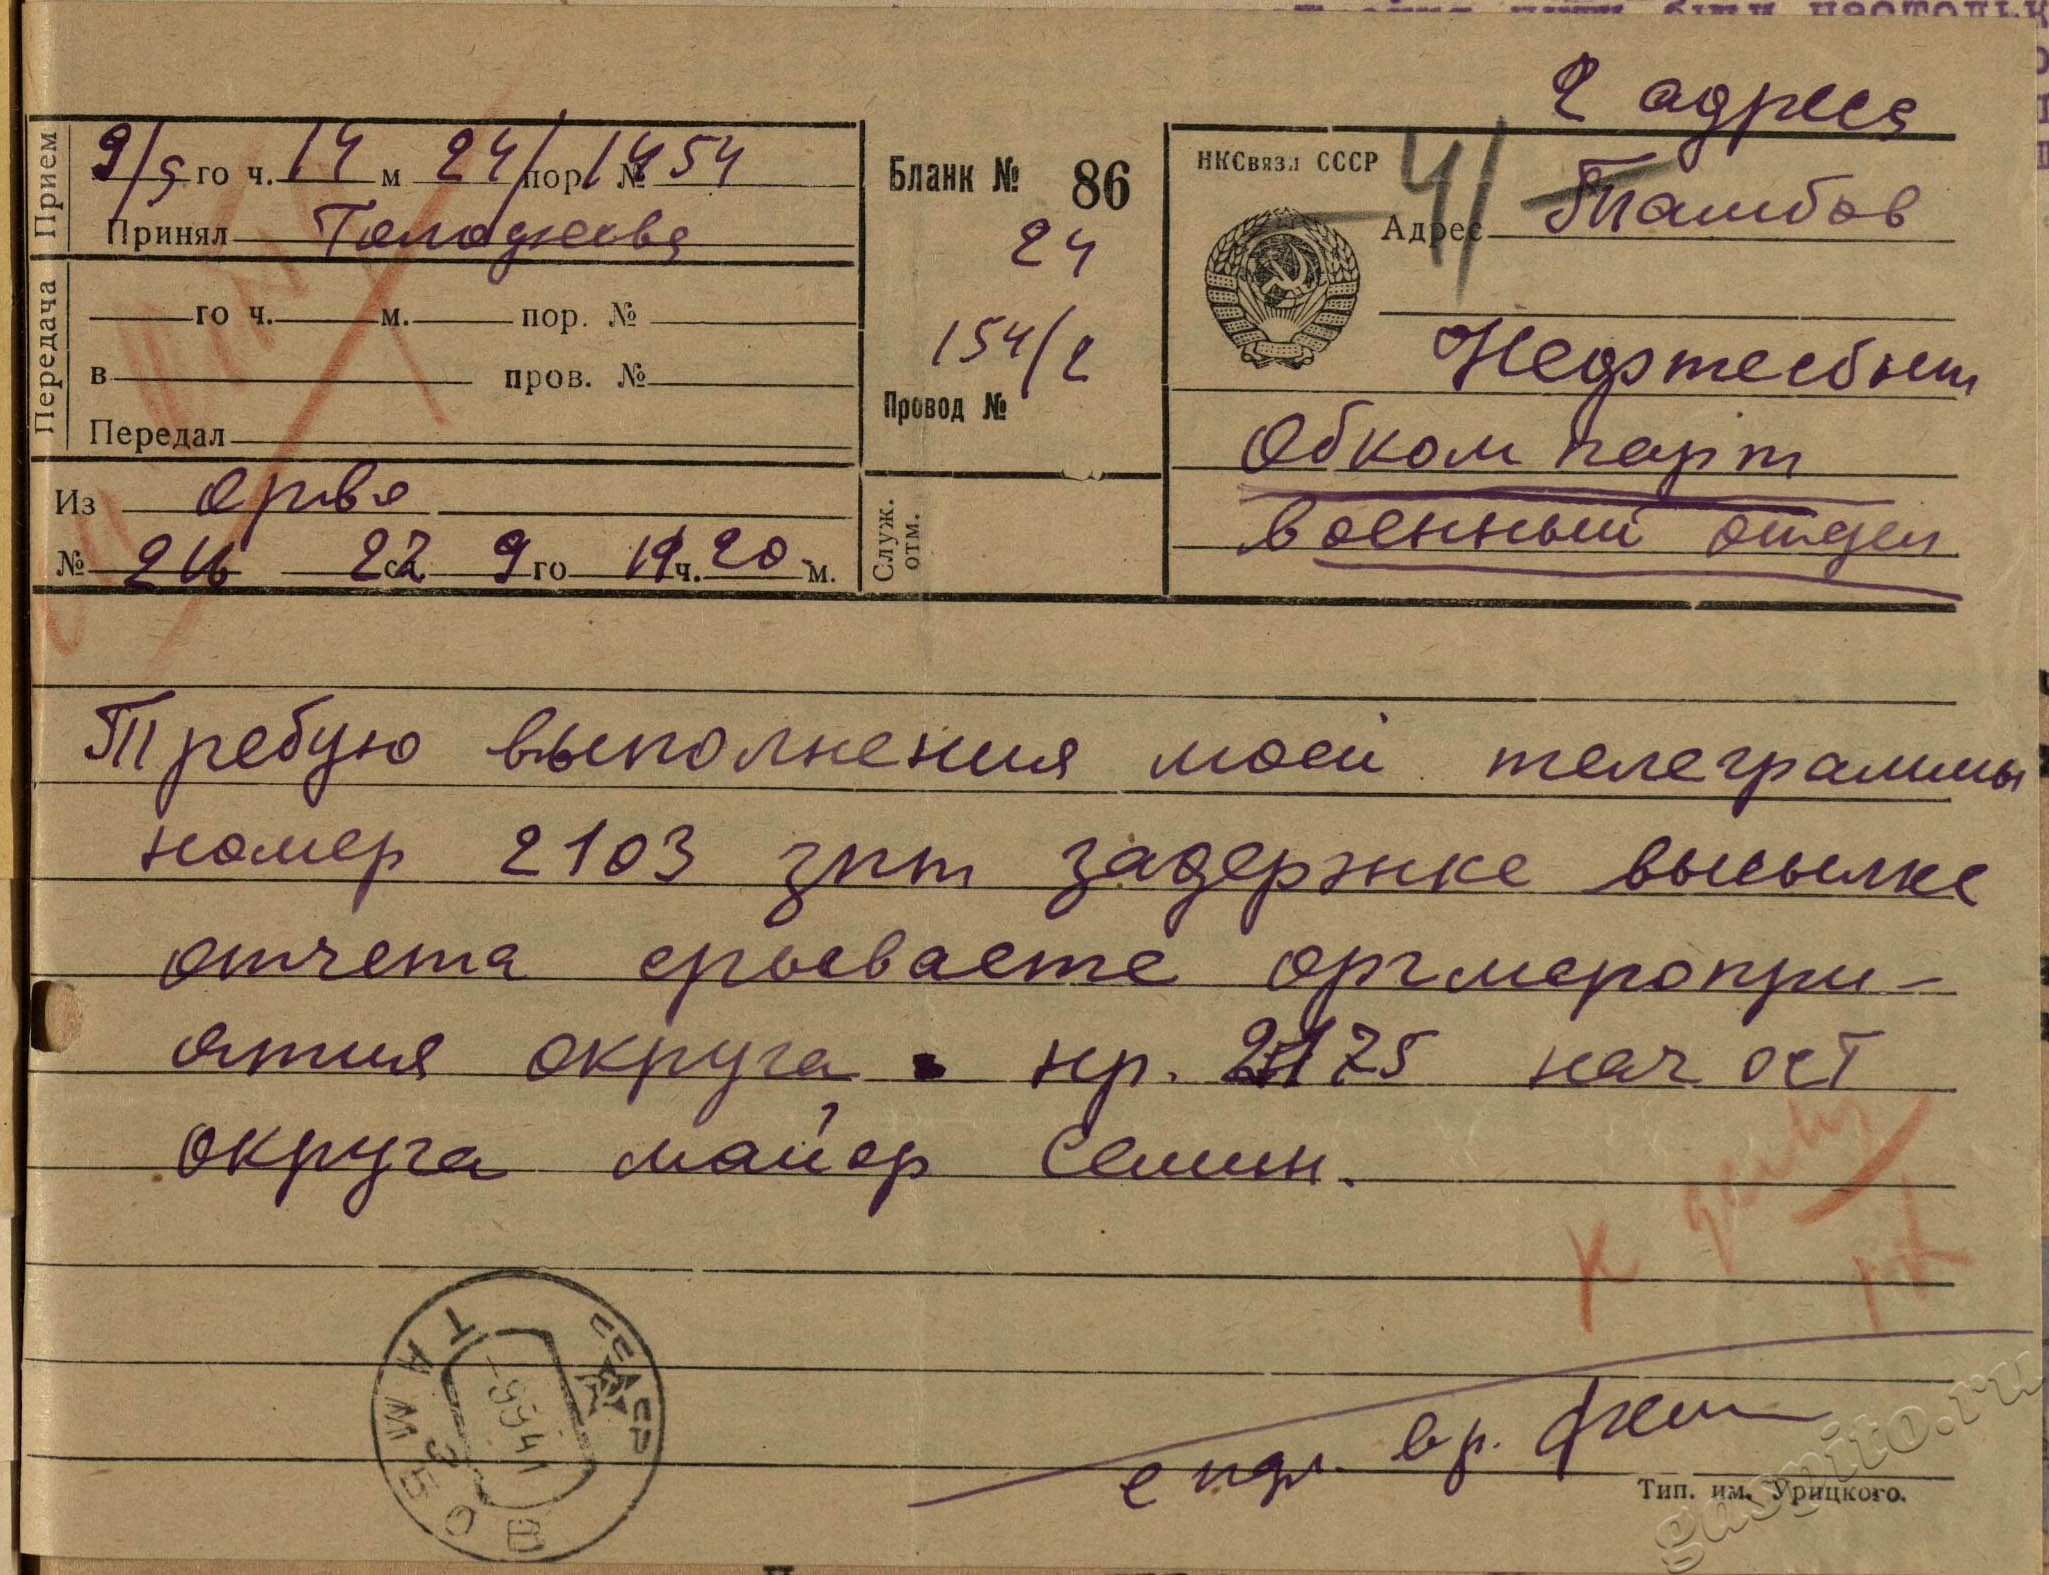 2 адреса
Прием
9/5 го ч. 14 м 24 пор. № 1454
Принял
Передача
го ч. м. пор. №
в пров. №
Передал
Из орла
№ 216 22 сл. 9 го 14 ч. 20 м.
Бланк № 86
24
154/2
Провод №
Служ. отм.
НКСвязи СССР
41
Адрес Тамбов
Нефтесбыт
Обком парт
военный отдел
Требую выполнения моей телеграммы
номер 2103 зпт задержке высылке
отчета срываете оргмеропри-
ятия округа . нр. 2175 нач ост
округа майор Семин.
К делу
СССР
ТАМБОВ
-9 5 41
Тип. им. Урицкого.
gaspito.ru